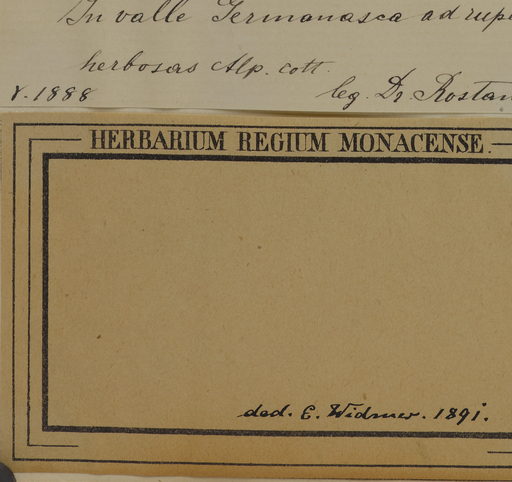 In valle Germanasca ad rupe
herbosas Alp. cott.
γ. 1888 leg. Dr Rostan
HERBARIUM REGIUM MONACENSE.
ded. E. Widmer. 1891.